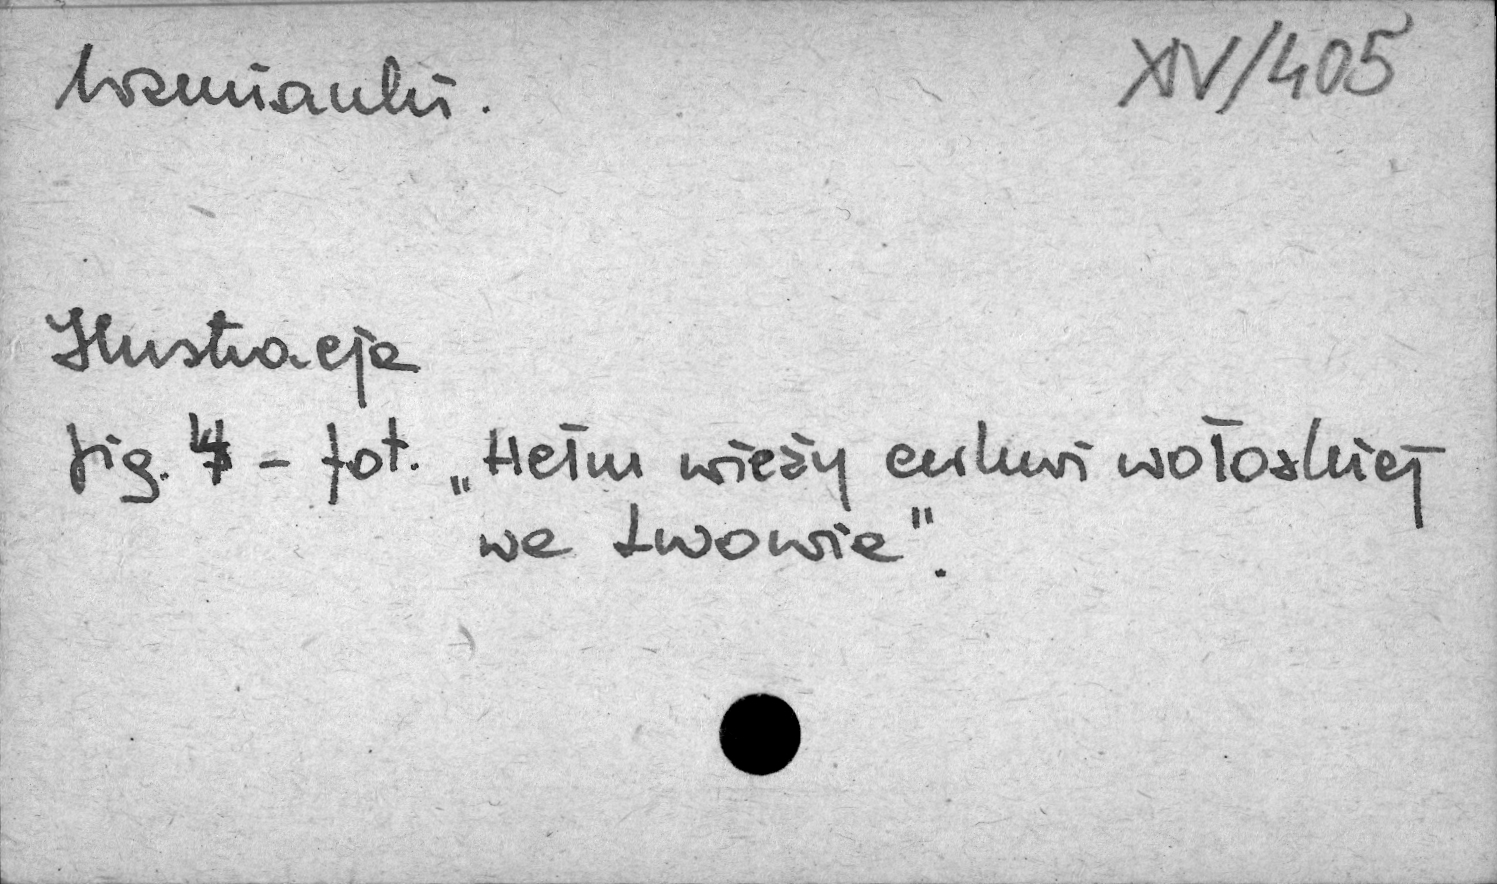 Wzmianki.
XIV/405
Ilustracje
fig. 4 - fot. „Hełm wieży cerkwi wołoskiej
we Lwowie".